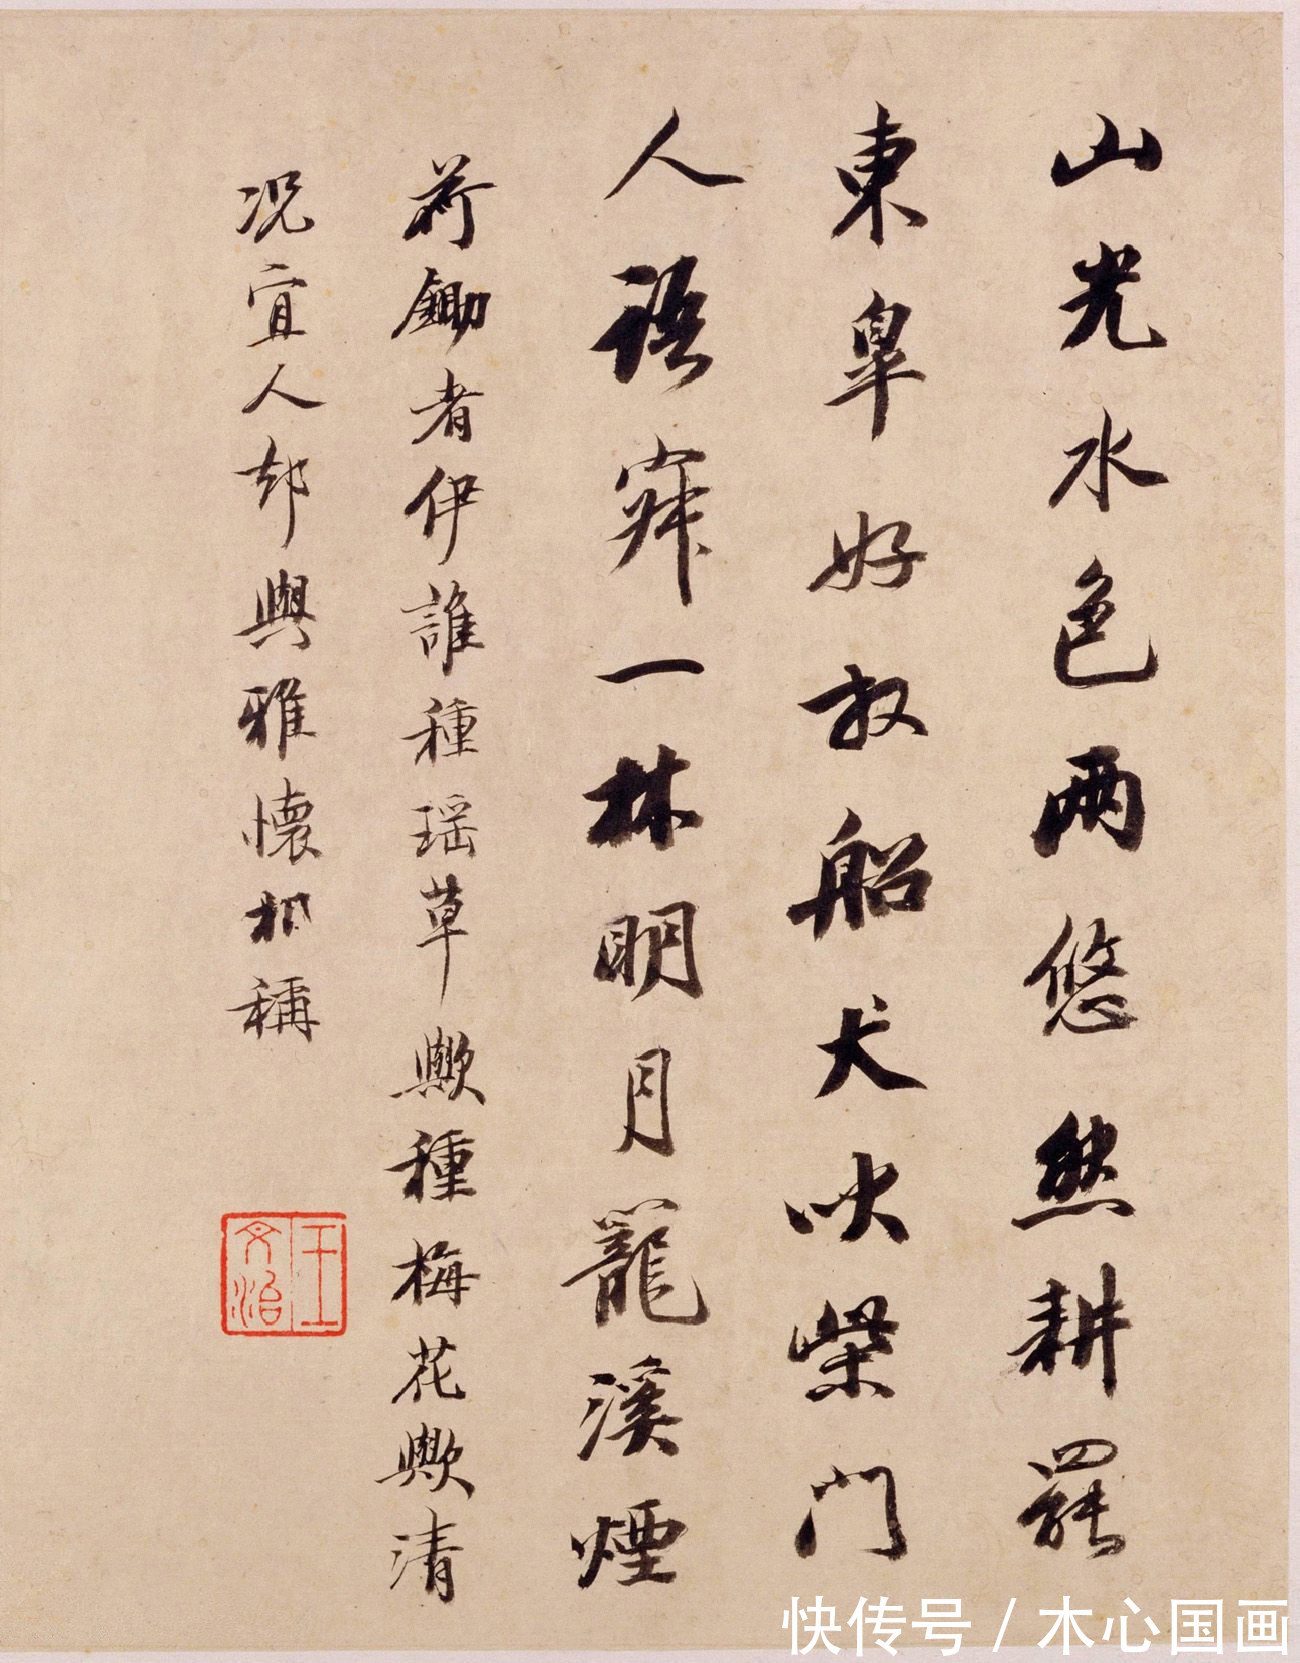 山光水色兩悠然耕罷
東皐好放船犬吠柴門
人語寂一林明月籠溪煙
荷鋤者伊誰種瑶草歟種梅花歟清
况宜人却與雅懷相稱
王文治
快传号 / 木心国画